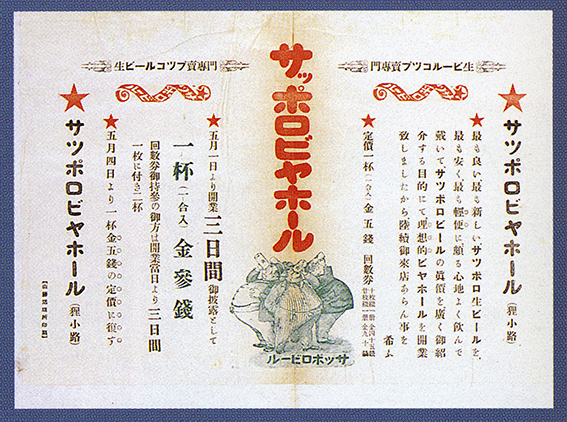 生ビールコツプ賣專門
★サツポロビヤホール（狸小路）
★最も良い最も新しいサツポロ生ビールを、
最も安く最も輕便に頗る心地よく飲んで
戴いてサツポロビールの眞價を廣く御紹
介する目的にて理想的ビヤホールを開業
致しましたから陸續御來店あらん事を
希ふ
★定價一杯（二合入）金五錢 回數券
十枚綴一册金四十五錢
廿枚綴一册金九十錢
サッポロビヤホール
サッポロビール
生ビールコツプ賣專門
★五月一日より開業三日間御披露として
一杯（二合入）金參錢
回數券御持參の御方は開業當日より三日間
一枚に付き二杯
★五月四日より一杯金五錢の定價に復す
★サツポロビヤホール（狸小路）